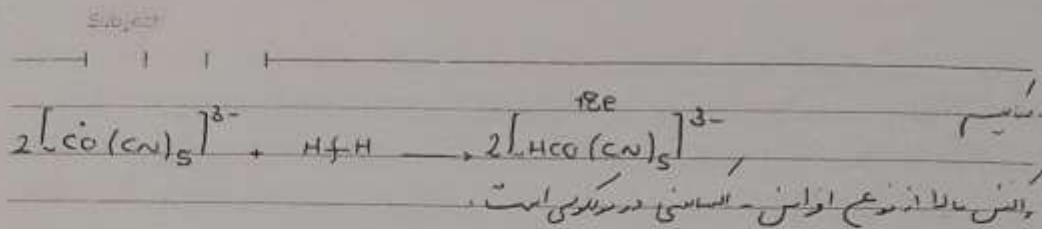 Subject
18e
2[Ċo(CN)5]3- + H+H → 2[HCo(CN)5]3-
واکنش بالا از نوع افزایش - اکسایشی دو مولکولی است.